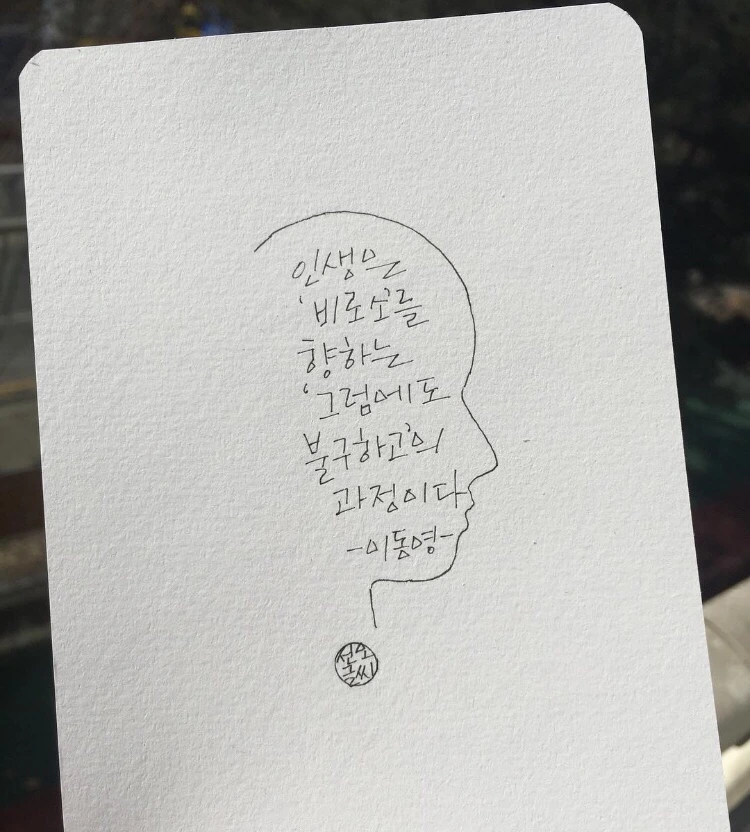 인생은
'비로소'를
향하는
'그럼에도
불구하고'의
과정이다
-이동영-
글씨